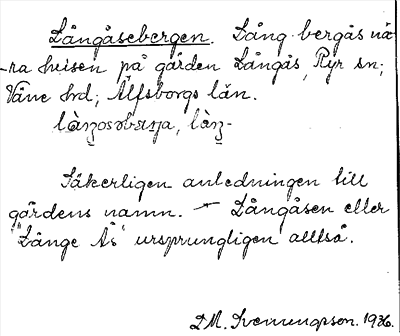 Långåsebergen. Lång bergås nä-
-ra husen på gården Långås, Ryr sn;
Väne hrd, Älfsborgs län.
Säkerligen anledningen till
gårdens namn. — Långåsen eller
"Långe Ås" ursprungligen alltså.
D.M. Svenungsson. 1936.